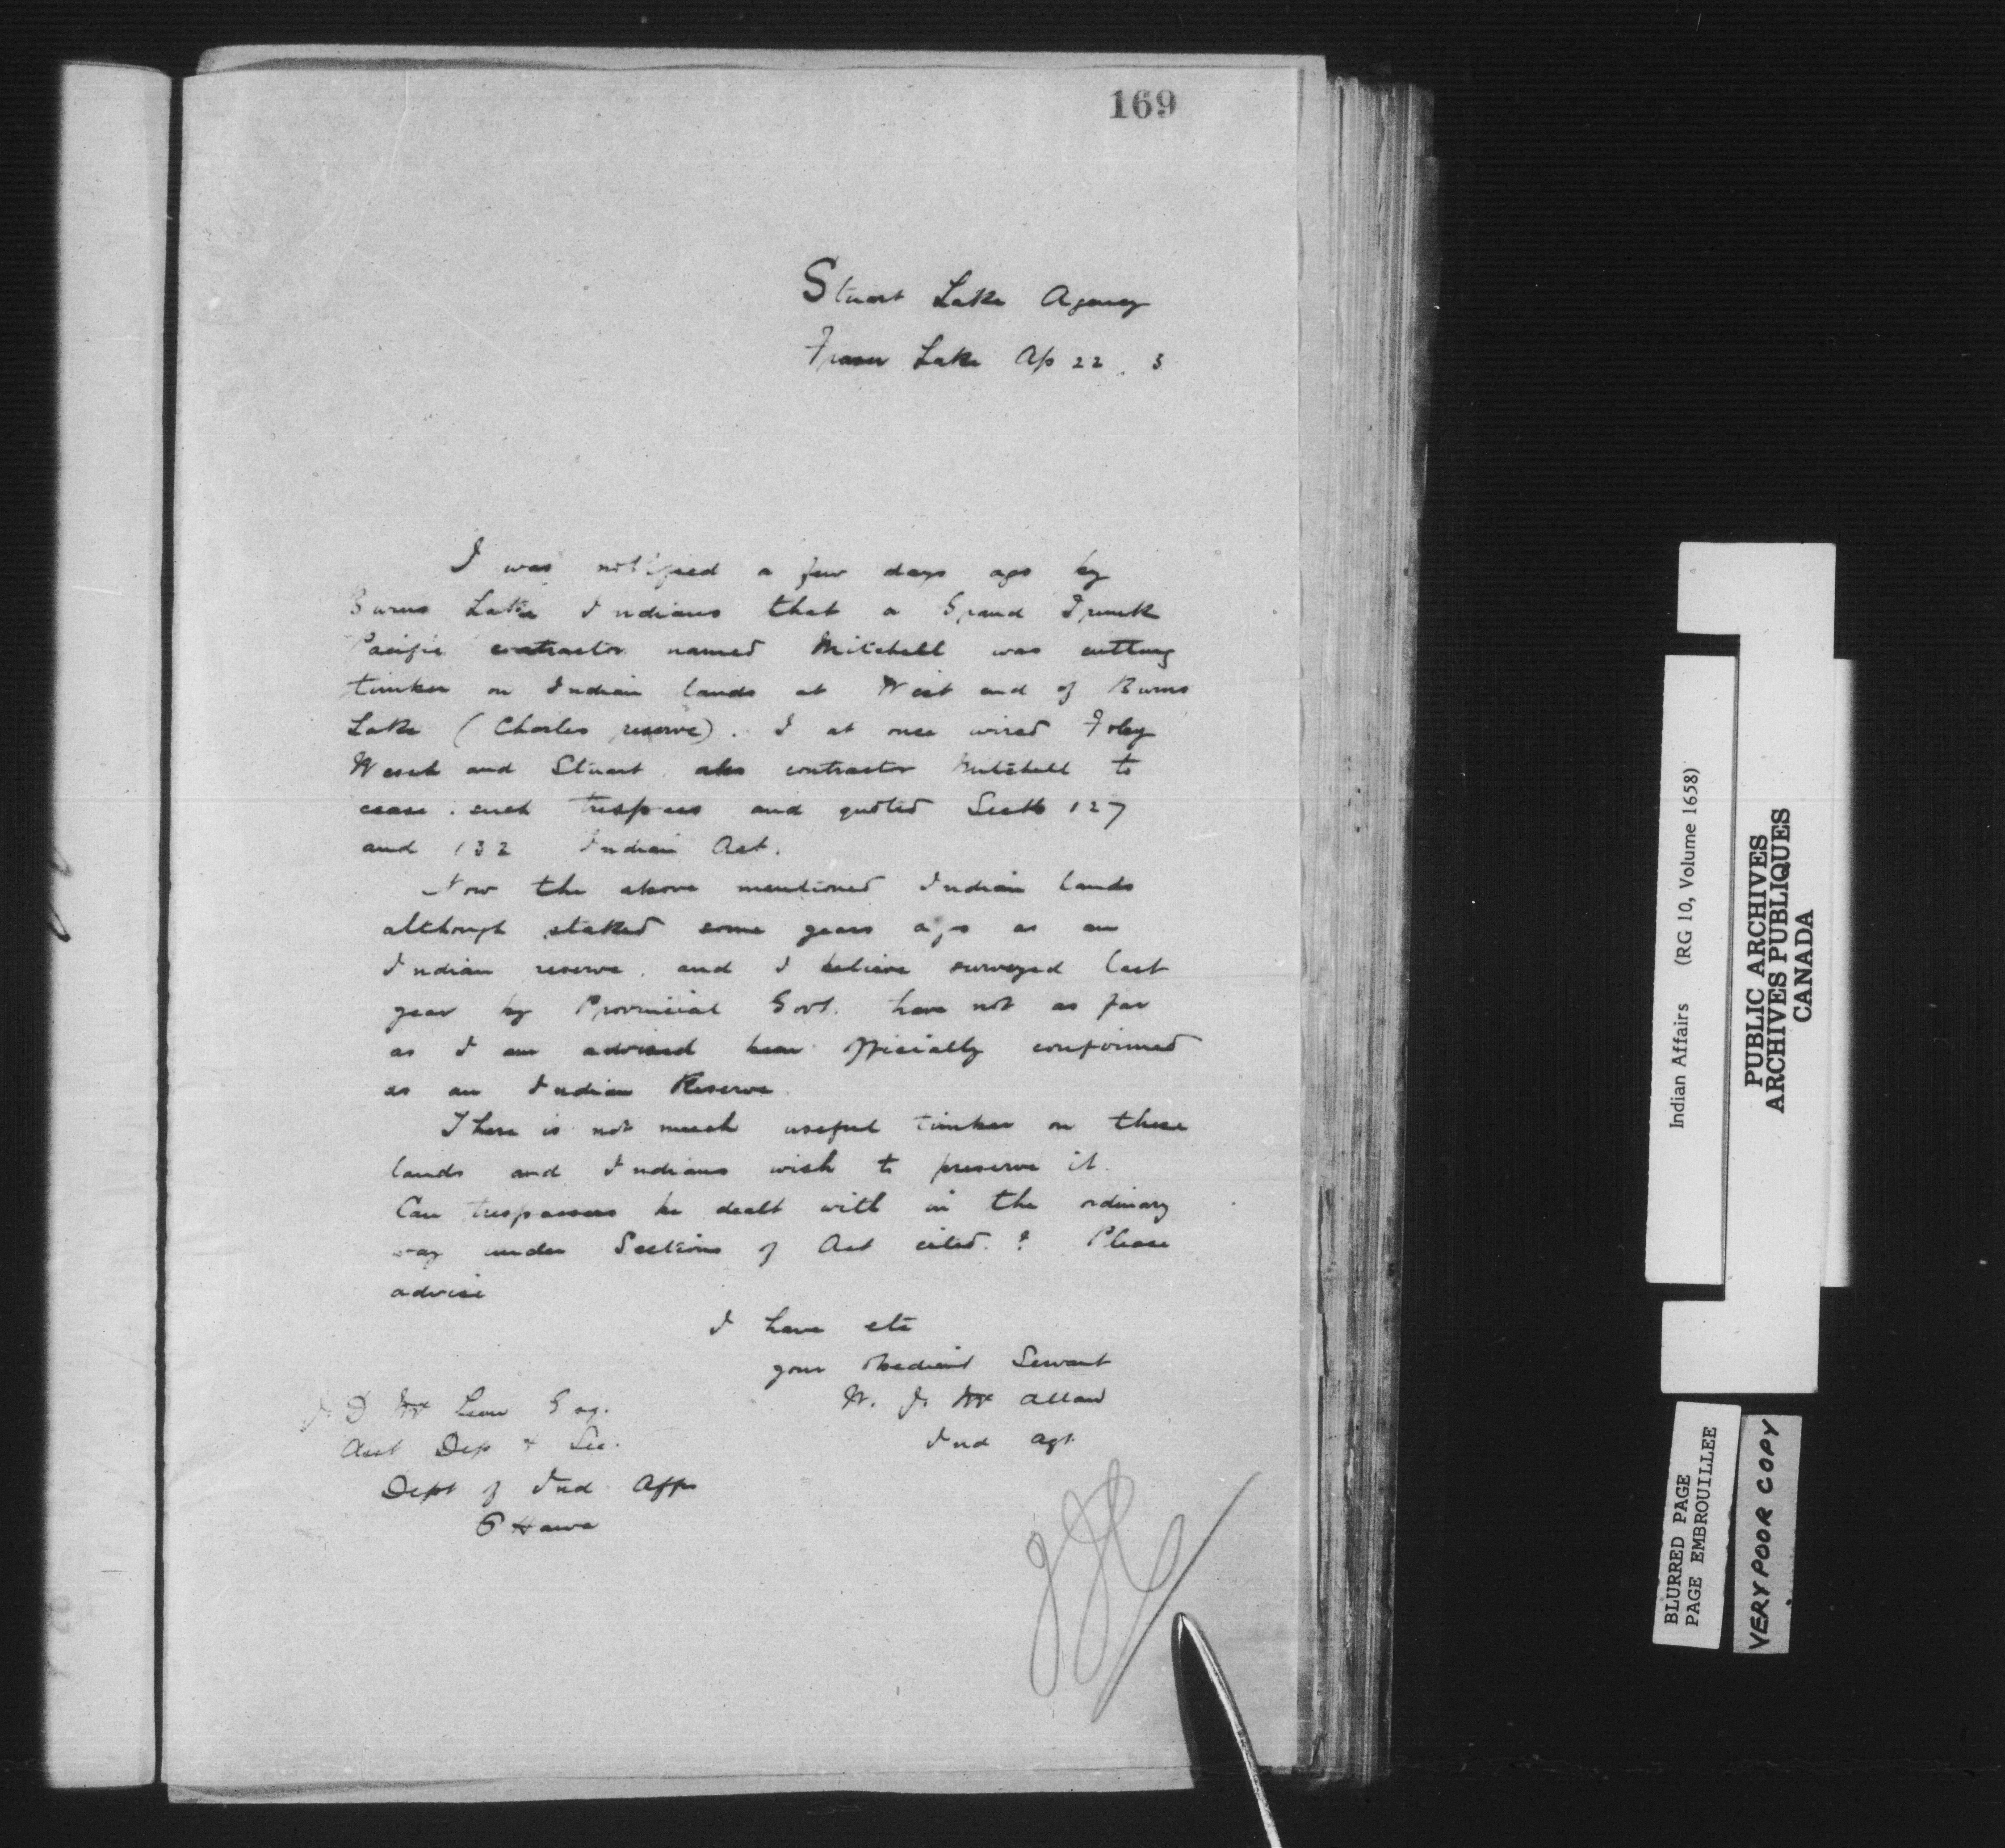 169
Stuart Lake Agency
Fraser Lake Ap 22. 3
I was notified a few days ago by
Burns Lake Indians that a Grand Trunk
Pacific contractor named Mitchell was cutting
timber on Indian lands at West end of Burns
Lake (Charles reserve). I at once wired Foley
Welch and Stuart also contractor Mitchell to
cease such trespass and quoted Sects 127
and 132 Indian Act.
Now the above mentioned Indian lands
although staked some years ago as an
Indian reserve, and I believe surveyed last
year by Provincial Govt. have not as far
as I am advised been officially confirmed
as an Indian Reserve.
There is not much useful timber on these
lands and Indians wish to preserve it.
Can trespassers be dealt with in the ordinary
way under Sections of Act cited.? Please
advise
I have etc
your obedient Servant
W. J. Mc Allan
Ind Agt.
J. D Mc Lean Esq.
Asst Dep & Sec.
Dept of Ind Affs
Ottawa
Indian Affairs (RG 10, Volume 1658)
PUBLIC ARCHIVES
ARCHIVES PUBLIQUES
CANADA
BLURRED PAGE
PAGE EMBROUILLEE
VERY POOR COPY